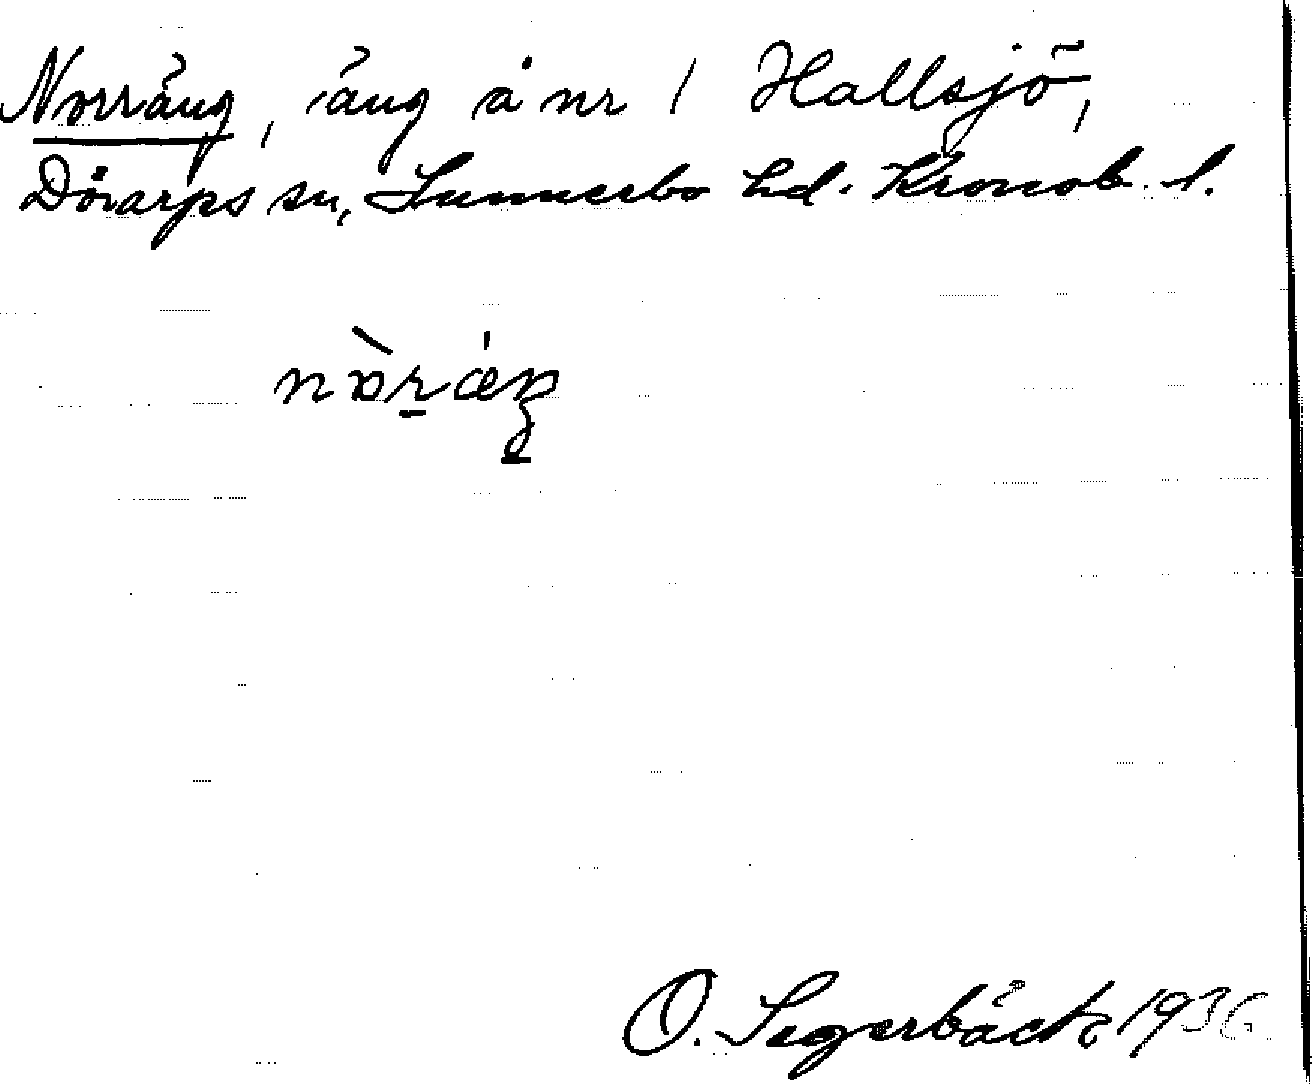 Norräng, äng å nr 1 Hallsjö,
Dörarps sn, Sunnerbo hd. Kronob. l.
nòræ̀ŋ
O. Segerbäck 1936